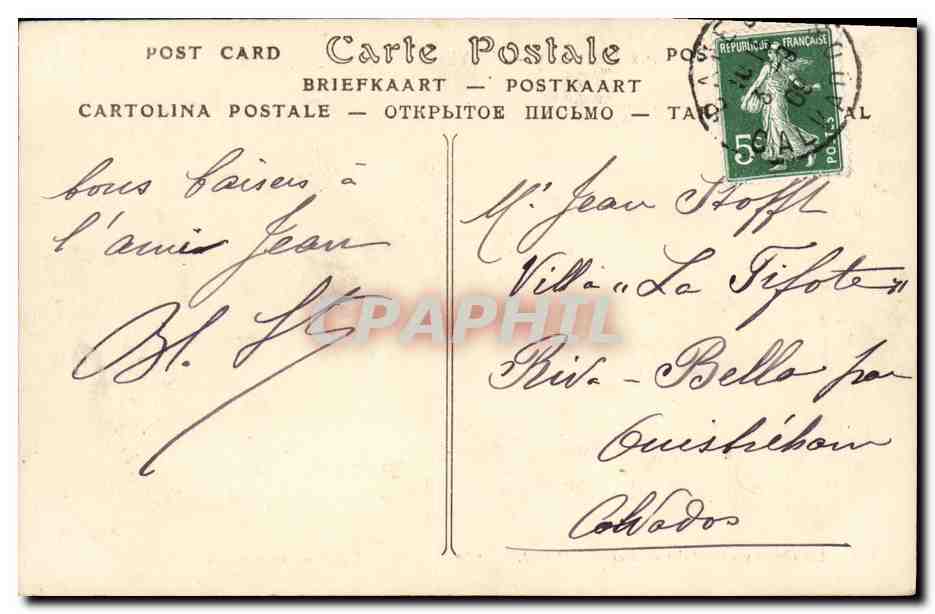 POST CARD Carte Postale POS
BRIEFKAART — POSTKAART
CARTOLINA POSTALE — ОТКРЫТОЕ ПИСЬМО — TA AL
REPUBLIQUE FRANÇAISE
5c
POSTES
CALV
bons baisers à
l'ami Jean
Mr Jean Stofft
Villa "La Tifote"
Riva-Bella par
Ouistréham
Calvados
CPAPHIL